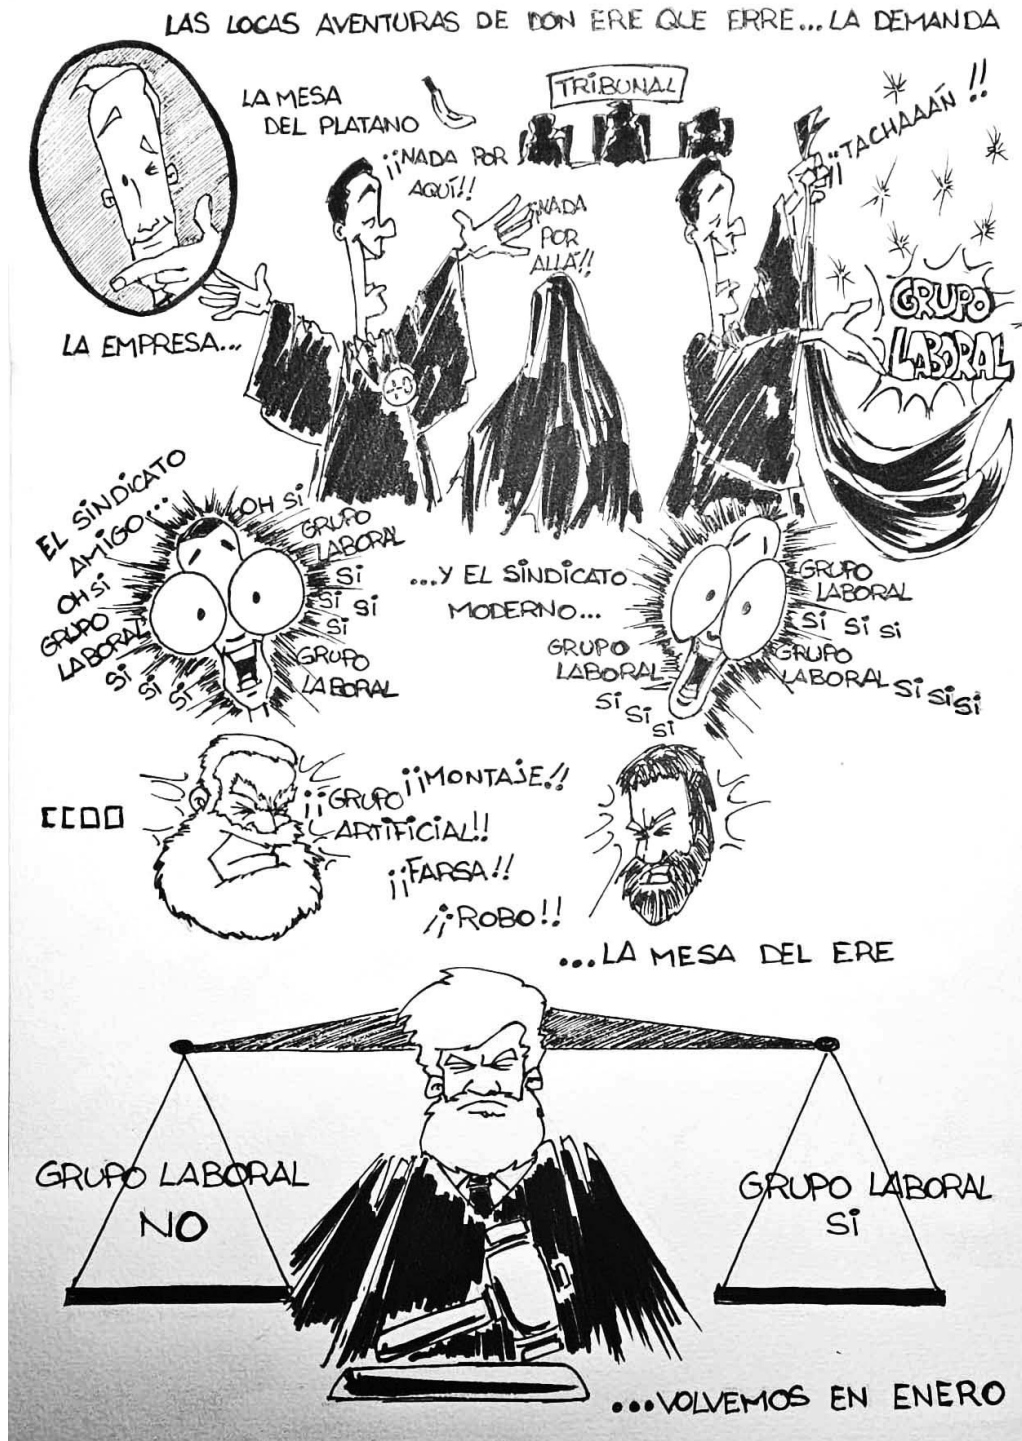 LAS LOCAS AVENTURAS DE DON ERE QUE ERRE...LA DEMANDA
LA MESA
DEL PLATANO
TRIBUNAL
¡¡NADA POR
AQUÍ!!
¡NADA
POR
ALLÁ!!
¡¡TACHAAAÁN!!
GRUPO
LABORAL
LA EMPRESA...
EL SINDICATO
AMIGO...
OH SI
GRUPO
LABORAL
SI
SI SI
SI
GRUPO
LABORAL
OH SI
GRUPO
LABORAL
SI
SI
SI
...Y EL SINDICATO
MODERNO...
GRUPO
LABORAL
SI SI SI
GRUPO
LABORAL
SI SI SI
GRUPO
LABORAL
SI
SI
SI
CCOO
¡¡GRUPO
ARTIFICIAL!!
¡¡MONTAJE!!
¡¡FARSA!!
¡¡ROBO!!
...LA MESA DEL ERE
GRUPO LABORAL
NO
GRUPO LABORAL
SI
...VOLVEMOS EN ENERO